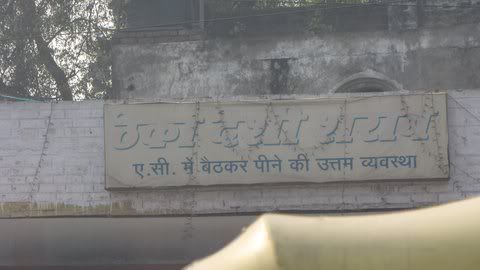 ठेका देशी शराब
ए.सी. में बैठकर पीने की उत्तम व्यवस्था